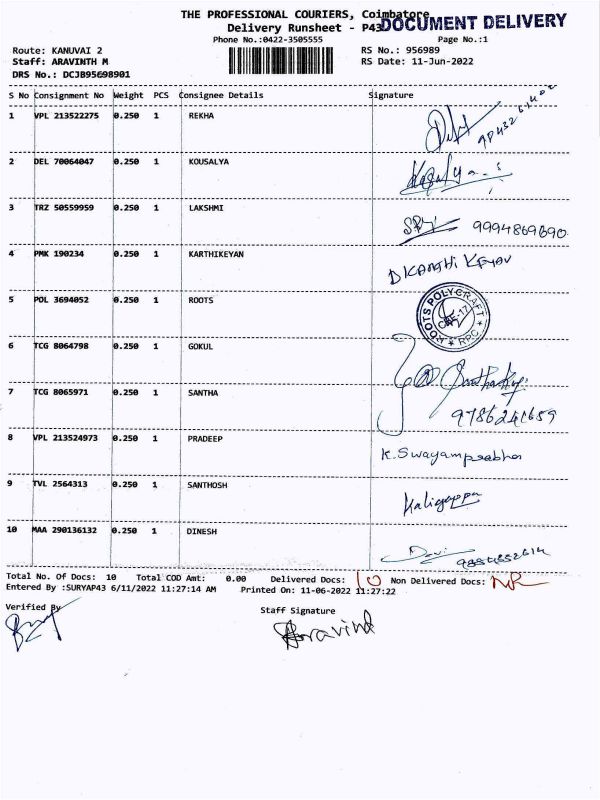 THE PROFESSIONAL COURIERS, Coimbatore
DOCUMENT DELIVERY
Delivery Runsheet - P43
Phone No.:0422-3505555
Page No.:1
Route: KANUVAI 2
RS No.: 956989
Staff: ARAVINTH M
RS Date: 11-Jun-2022
DRS No.: DCJB95698901
S No Consignment No Weight PCS Consignee Details Signature
1 VPL 213522275 0.250 1 REKHA
2 DEL 70064047 0.250 1 KOUSALYA
3 TRZ 50559959 0.250 1 LAKSHMI 9994869690
4 PMK 190234 0.250 1 KARTHIKEYAN
5 POL 3694052 0.250 1 ROOTS ROOTS POLYCRAFT RPC
6 TCG 8064798 0.250 1 GOKUL
7 TCG 8065971 0.250 1 SANTHA 9786241659
8 VPL 213524973 0.250 1 PRADEEP K. Swayamprabha
9 TVL 2564313 0.250 1 SANTHOSH Kaligappa
10 MAA 290136132 0.250 1 DINESH Devi
Total No. Of Docs: 10 Total COD Amt: 0.00 Delivered Docs: 10 Non Delivered Docs: NR
Entered By :SURYAP43 6/11/2022 11:27:14 AM Printed On: 11-06-2022 11:27:22
Verified By
Staff Signature
Aravind